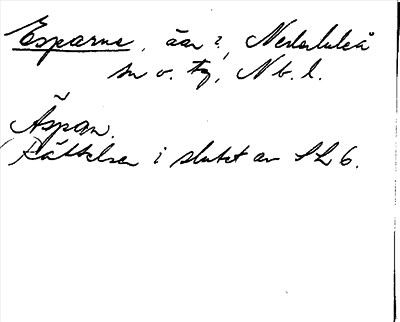 Esparne, äar?, Nederluleå
sn o. tg, Nb. l.
Äspan.
(Rättelser i slutet av SL 6.